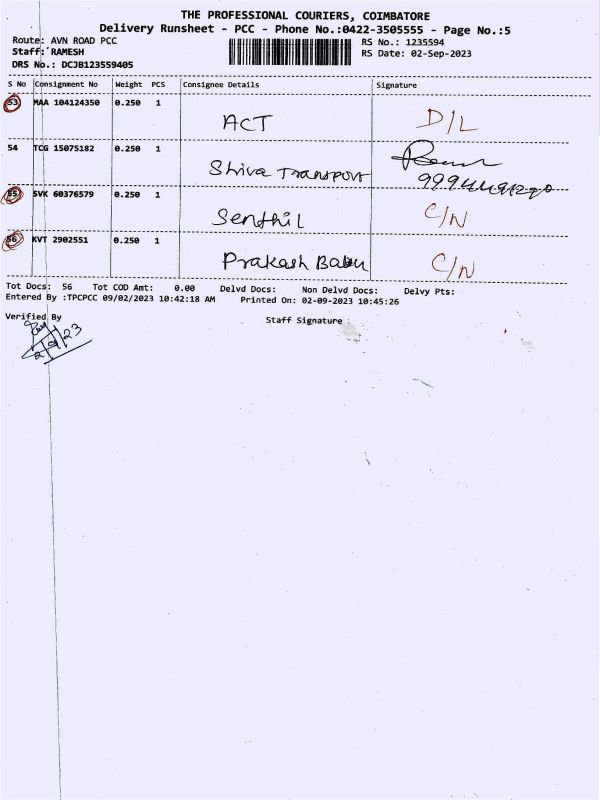 THE PROFESSIONAL COURIERS, COIMBATORE
Delivery Runsheet - PCC - Phone No.:0422-3505555 - Page No.:5
Route: AVN ROAD PCC RS No.: 1235594
Staff: RAMESH RS Date: 02-Sep-2023
DRS No.: DCJB123559405
S No Consignment No Weight PCS Consignee Details Signature
53 MAA 104124350 0.250 1
ACT D/L
54 TCG 15075182 0.250 1
Shiva Transport
55 SVK 60376579 0.250 1
Senthil C/N
56 KVT 2902551 0.250 1
Prakash Babu C/N
Tot Docs: 56 Tot COD Amt: 0.00 Delvd Docs: Non Delvd Docs: Delvy Pts:
Entered By :TPCPCC 09/02/2023 10:42:18 AM Printed On: 02-09-2023 10:45:26
Verified By Staff Signature :
2/9/23